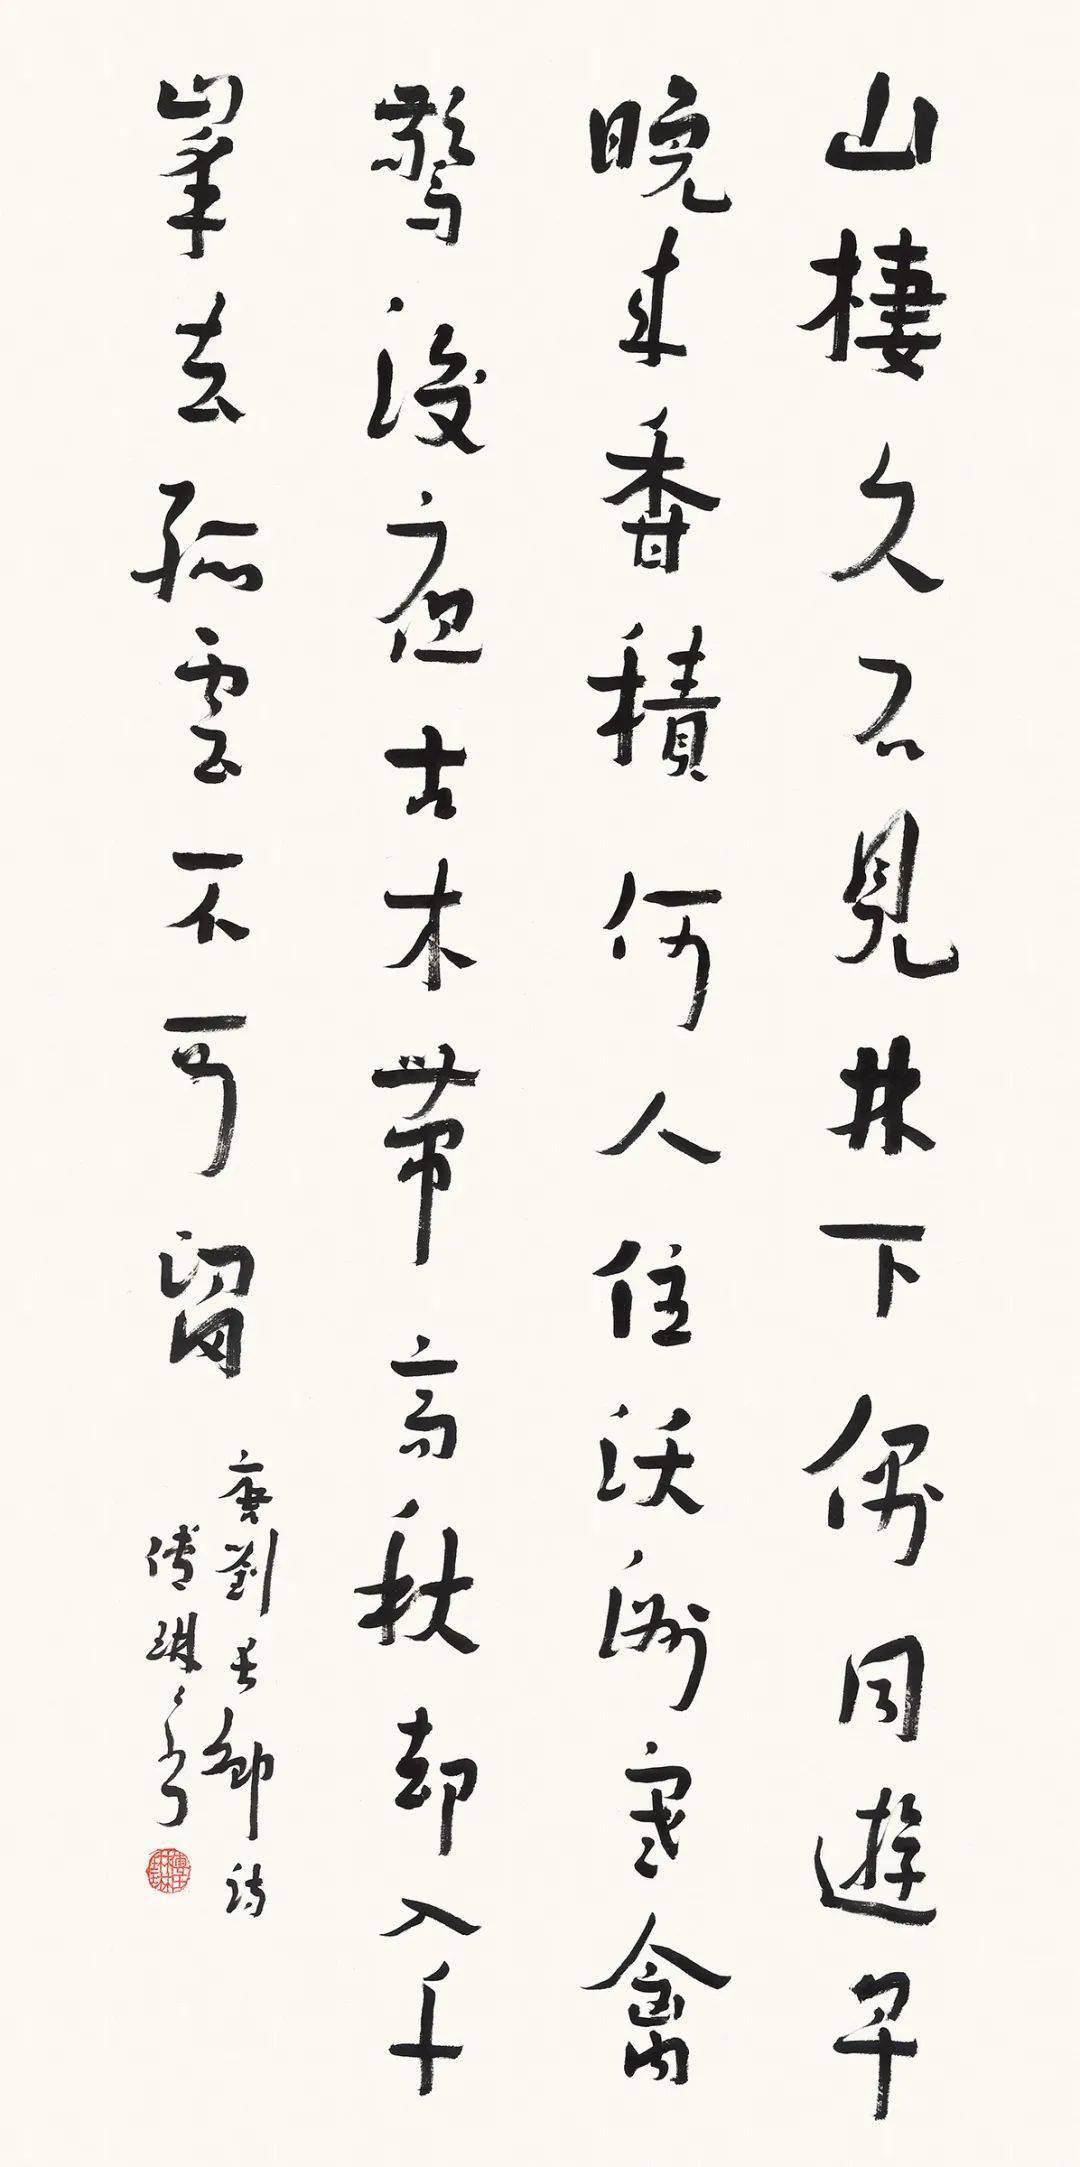 山棲久不見林下偶同遊早
晚來香積何人住沃洲寒禽
驚後夜古木帶高秋却入千
峯去孤雲不可留
唐劉長卿詩
傅